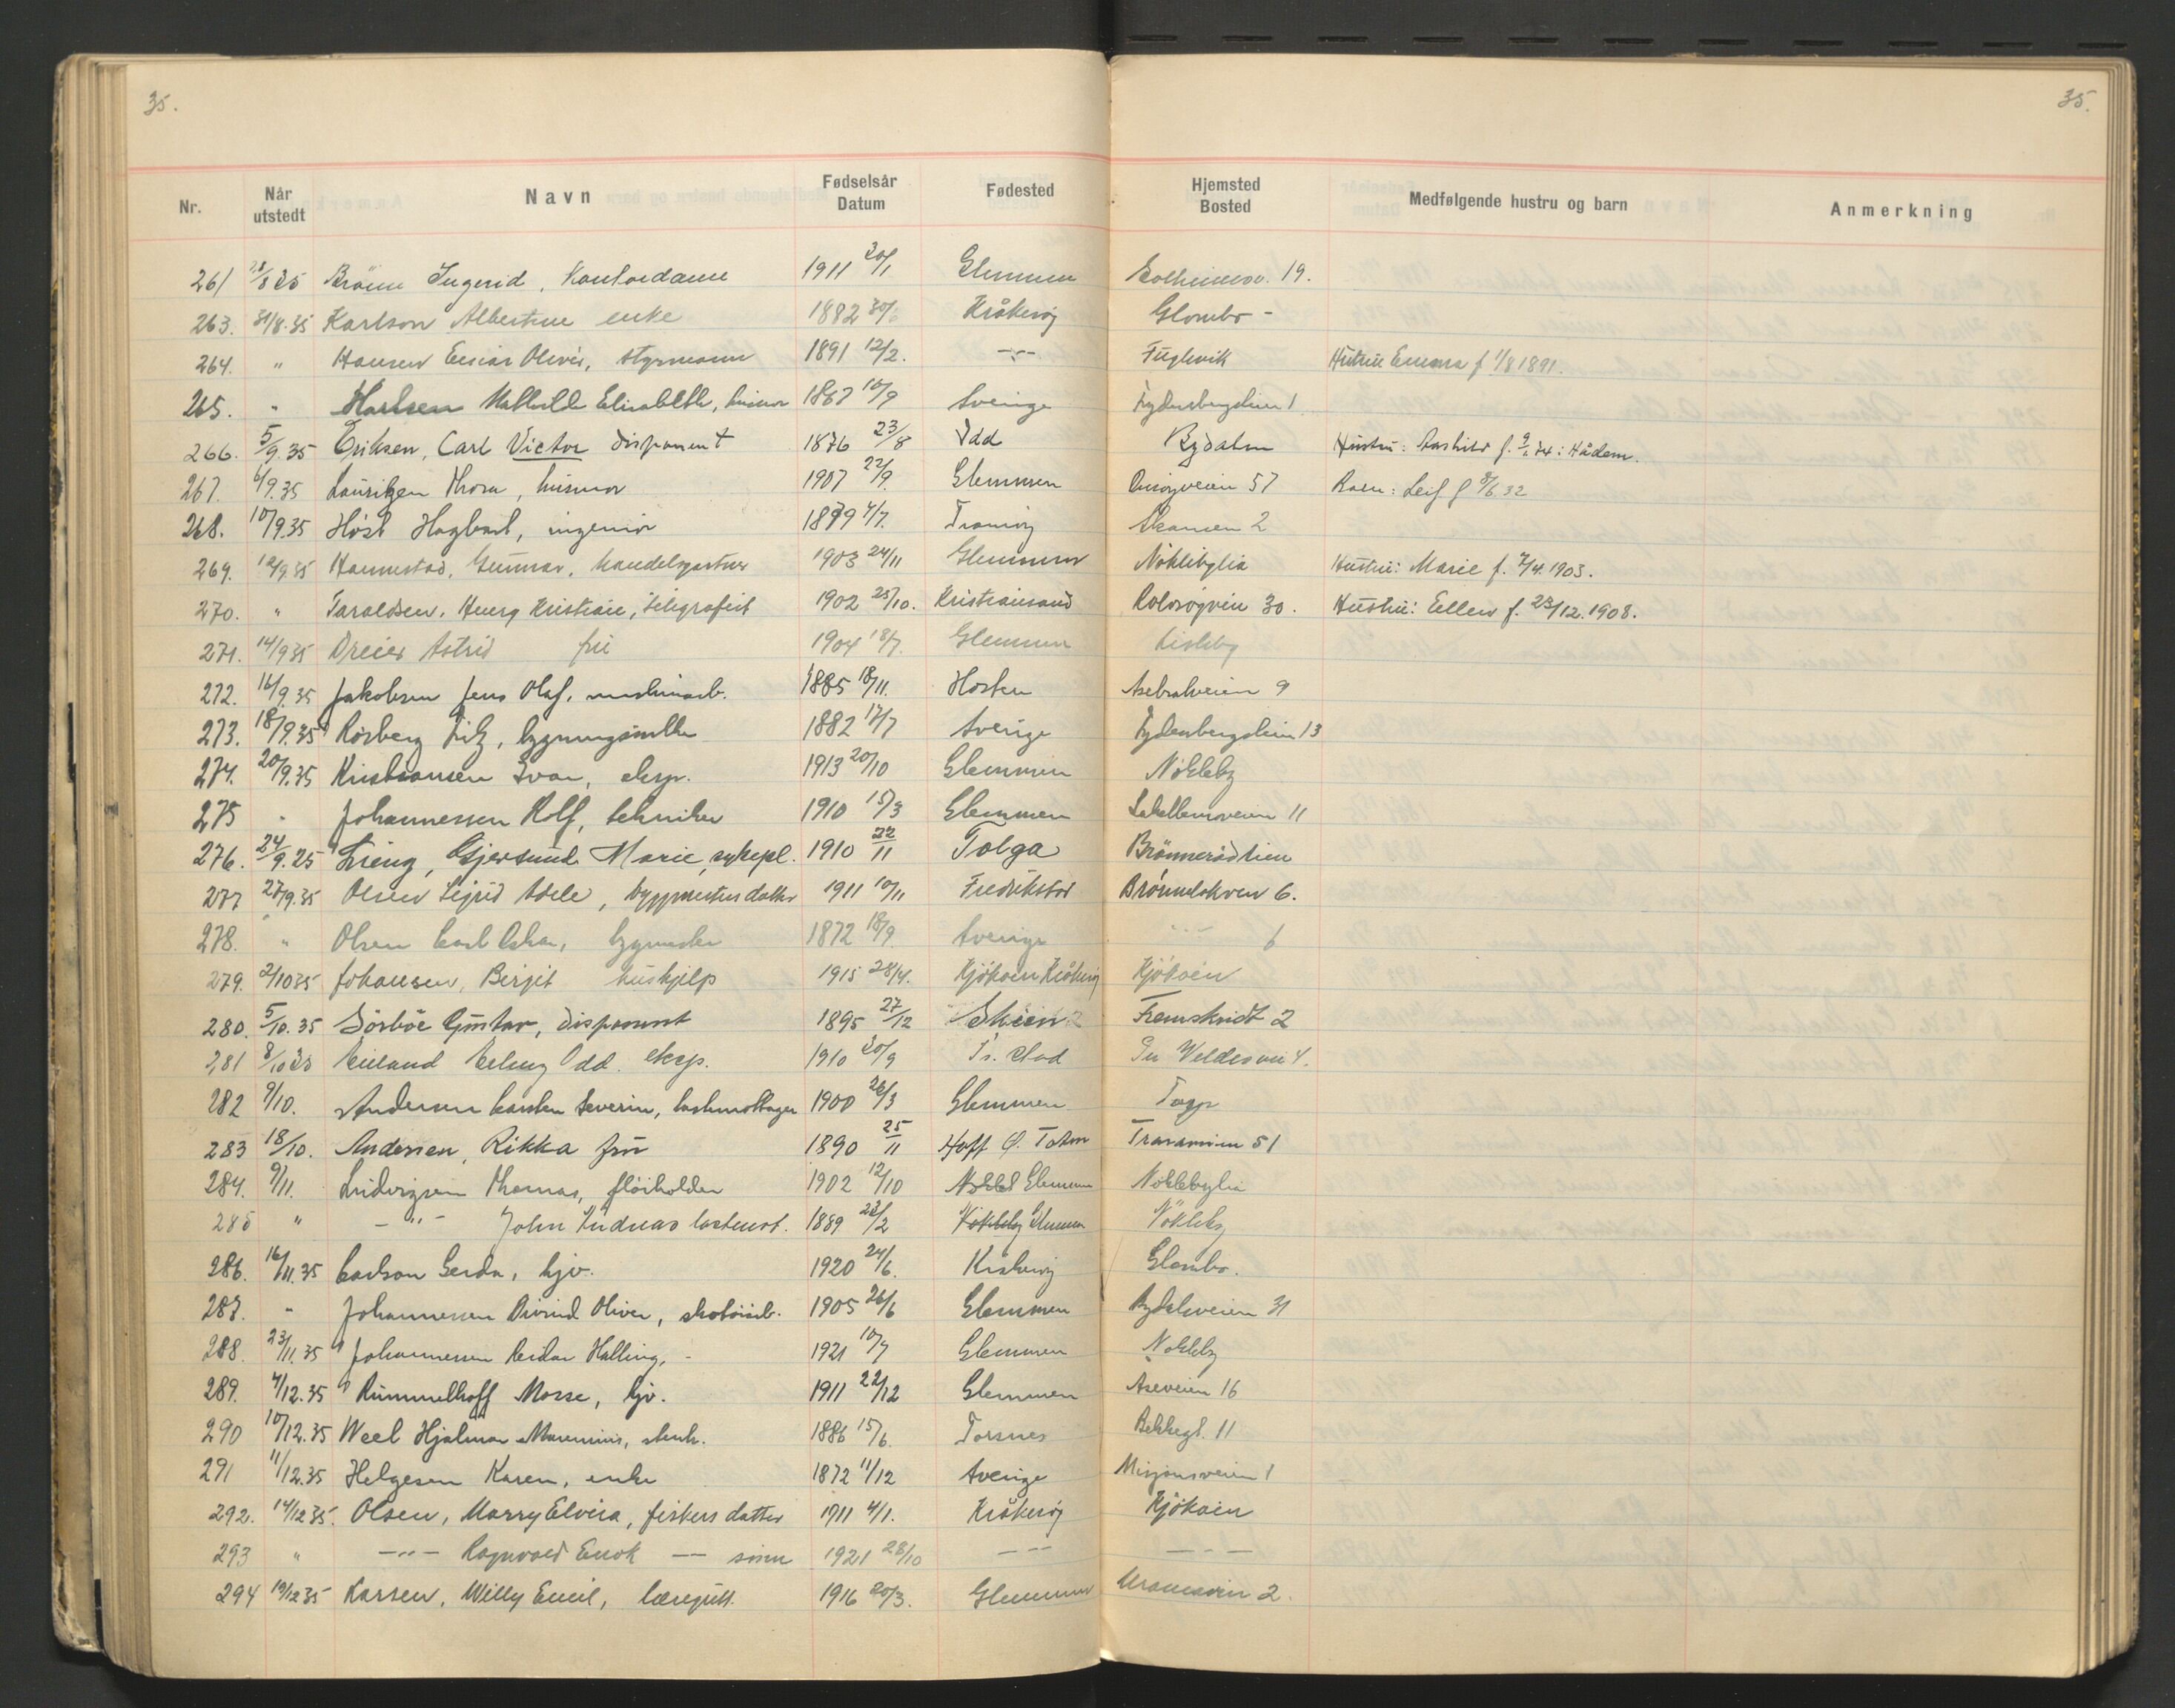 35. 35.
Nr. Når utstedt Navn Fødselsår Datum Fødested Hjemsted Bosted Medfølgende hustru og barn Anmerkning
261 Ingerid, Kontordame 1911 20/1 Glemmen 19.
263. 31/8.35 Karlson Albertine enke 1882 Kråkerøy Glombo -
264. " Hansen Oliver, styrmann 1891 12/2. -"- Fuglevik Hustru Emma f 1/8 1891.
265. " Karlsen Mathilde Elisabeth, husmor 1867 10/9 Sverige 1
266. 5/9.35 Eriksen, Carl Victor disponent 1876 23/8 Idd Rydalen Hustru:
267. 6/9.35 Lauritzen Thora, husmor 1907 22/9. Glemmen 57 Barn: Leif f 8/6 32
268. 10/9.35 Høst Hagbart, ingeniør 1879 4/7. Tromøy 2
269. 12/9.35 Hannestad, Gunnar, handelsgartner 1903 24/11 Glemmen Nöklebylia Hustru: Marie f. 7/4.1903.
270. " Taraldsen, Kristian, telegrafist 1902 25/10. Kristiansand 30. Hustru: Ellen f. 23/12.1908.
271. 14/9 35 Dreier Astrid frü 1904 18/7. Glemmen Kisleby
272. 16/9.35 Jakobsen Jens Olaf, 1885 18/11. 9
273. 18/9.35 Rosberg Fritz, 1882 17/7 Sverige 13
274. 20/9.35 Kristiansen Ivar, eksp. 1913 20/10 Glemmen Nökleby
275 " Johannessen Rolf, tekniker 1910 15/3 Glemmen 11
276. 24/9.25 Lieng, Gjersund Marie, sykepl. 1910 22/11 Tolga Brönnerödlien
277 27/9.35 Olsen Sigrid Adele, byggmesters datter 1911 10/11 Fredrikstad 6.
278. " Olsen Carl Oskar, bygmester 1872 18/9. Sverige -"- 6
279. 2/10 35 Johansen, Birgit hushjelp 1915 28/4. Kjököen Kråkeröy Kjököen
280. 5/10.35 Sörböe Gustav, disponent 1895 27/12 Skien Fremskridt 2
281 8/10 35 Odd. eksp. 1910 20/9 Fr. stad 4.
282 9/10. Andersen Karsten Severin, lastemottager 1900 26/3 Glemmen
283 18/10. Andersen, Rikka frü 1890 25/11 Hoff Ø. Toten Traraveien 51
284. 9/11. Ludvigsen Thomas, 1902 12/10 Glemmen Nöklebylia
285 " -"- John Andreas lastemot. 1889 23/2 Nökleby Glemmen Nökleby
286. 16/11.35 Carlson Gerda, hjv. 1920 24/6. Kråkeröy Glombo.
287. " Johannessen Oliver, skotöiarb. 1905 26/6 Glemmen 31
288. 23/11.35 Johannessen Reidar Halling, - 1921 10/7 Glemmen Nökleby
289. 4/12.35 Rummelhoff Mosse, hjv. 1911 22/12 Glemmen Aseveien 16
290 10/12.35 Weel Hjalmar 1886 15/6. Torsnes Bekkegt. 11
291 11/12.35 Helgesen Karen, enke 1872 11/12 Sverige Misjonsveien 1
292. 14/12 35. Olsen, Marry Elvira, fiskers datter 1911 4/1. Kråkeröy Kjököen
293 " -"- Ragnvald Enok -- sönn 1921 28/10 -"- -"-
294 19/12 35 Larsen, Willy Emil, læregutt. 1916 20/3. Glemmen 2.